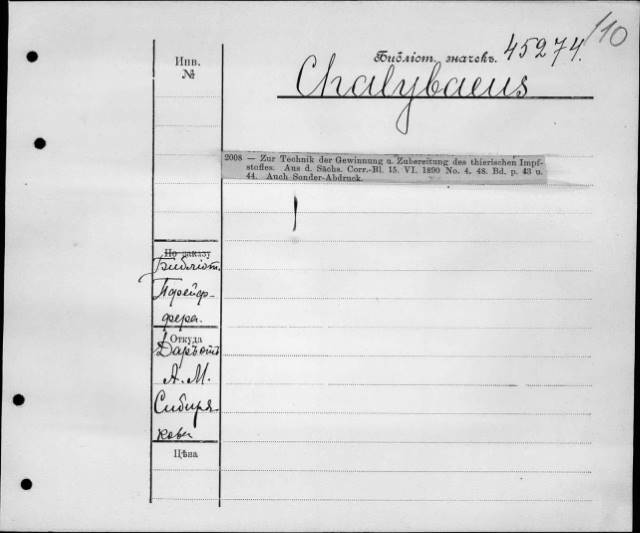 /10
Инв.
№
Библіот. значекъ. 45274.
Chalybaeus
2008 — Zur Technik der Gewinnung u. Zubereitung des thierischen Impf-
stoffes. Aus d. Sächs. Corr.-Bl. 15. VI. 1890 No. 4. 48. Bd. p. 43 u.
44. Auch Sonder-Abdruck.
По заказу
Библіот.
Пфейф-
фера.
Откуда
Даръ отъ
А. М.
Сибиря-
кова
Цѣна